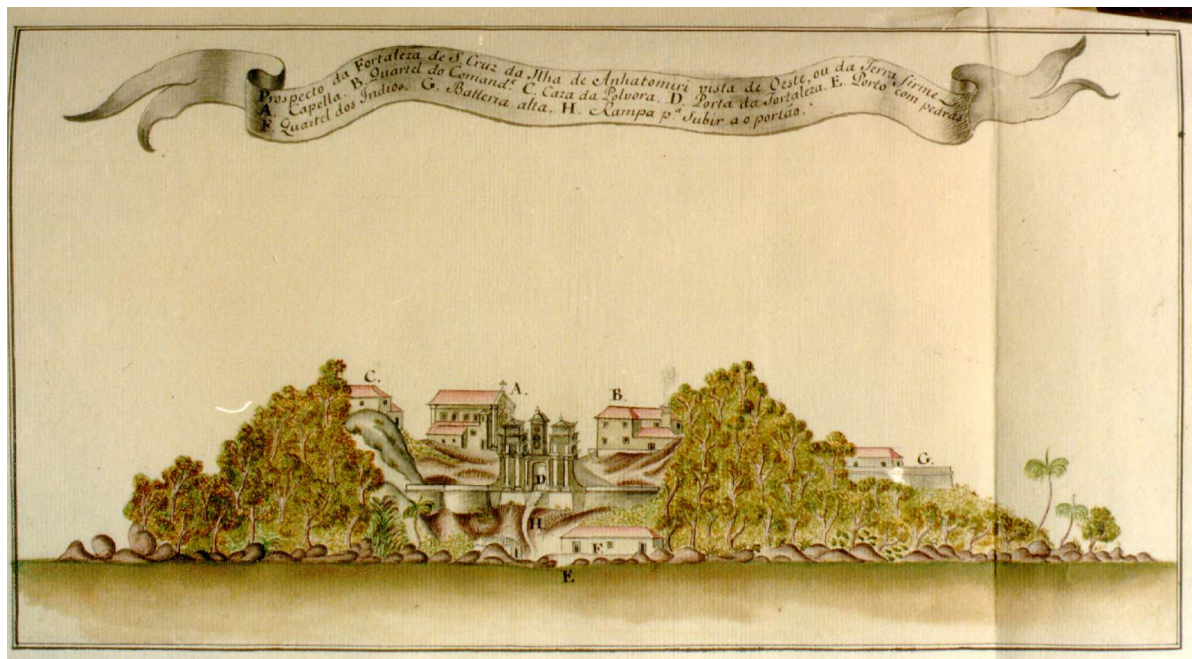 Prospecto da Fortaleza de S. Cruz da Ilha de Anhatomiri vista de Oeste, ou da Terra firme
A. Capella. B. Quartel do Comand.e C. Caza da Polvora. D. Porta da fortaleza. E. Porto com pedras
F. Quartel dos Indios. G. Batteria alta. H. Rampa p.a subir a o portão.
C.
A.
B.
G.
D
H
F.
E